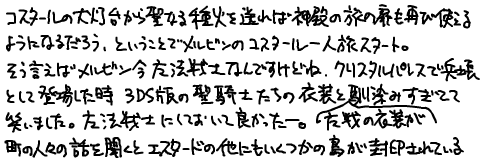 コスタールの大灯台から聖なる種火を送れば神殿の旅の扉も再び使える
ようになるだろう、ということでメルビンのコスタール一人旅スタート。
そう言えばメルビン今方法戦士なんですけどね、クリスタルパレスで兵士長
として登場した時3DS版の聖騎士たちの衣装と馴染みすぎてて
笑いました。方法戦士にしておいて良かったー。(方戦の衣装が
町の人々の話を聞くとエスタードの他にもいくつかの島が封印されている